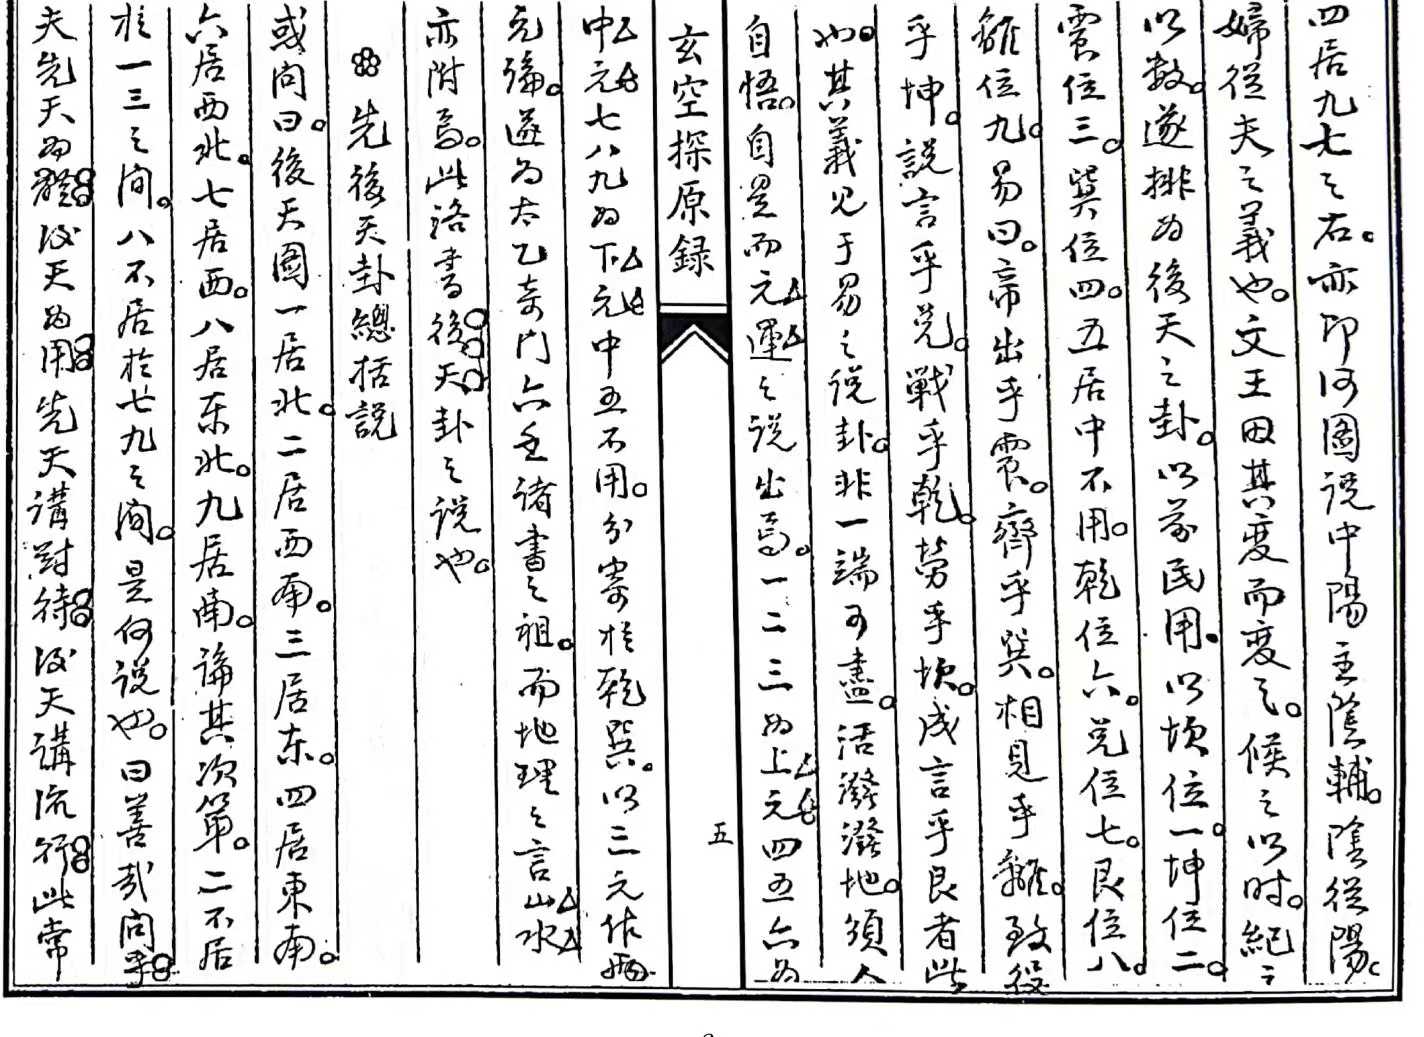 四居九七之右。亦即河圖說中陽主陰輔。陰從陽。
婦從夫之義也。文王因其變而變之。候之以时。紀之
以数。遂排为後天之卦。以前民用。以坎位一。坤位二。
震位三。巽位四。五居中不用。乾位六。兑位七。艮位八。
離位九。易曰。帝出乎震。齊乎巽。相見乎離。致役
乎坤。說言乎兑。戰乎乾。勞乎坎。成言乎艮者此
也。其義见于易之说卦。非一端可盡。活潑潑地。須人
自悟。自是而元運之说出焉。一二三为上元四五六为
玄空探原録
五
中元七八九为下元中五不用。分寄於乾巽。以三元作
元。遂为太乙奇门六壬诸書之祖。而地理之言山水
亦附焉。此洛書後天卦之说也。
先後天卦總括説
或问曰。後天圖一居北。二居西南。三居东。四居東南。
六居西北。七居西。八居东北。九居南。論其次第。二不居
於一三之间。八不居於七九之间。是何说也。曰善哉问乎。
夫先天为體。後天为用。先天講對待。後天講流行。此常